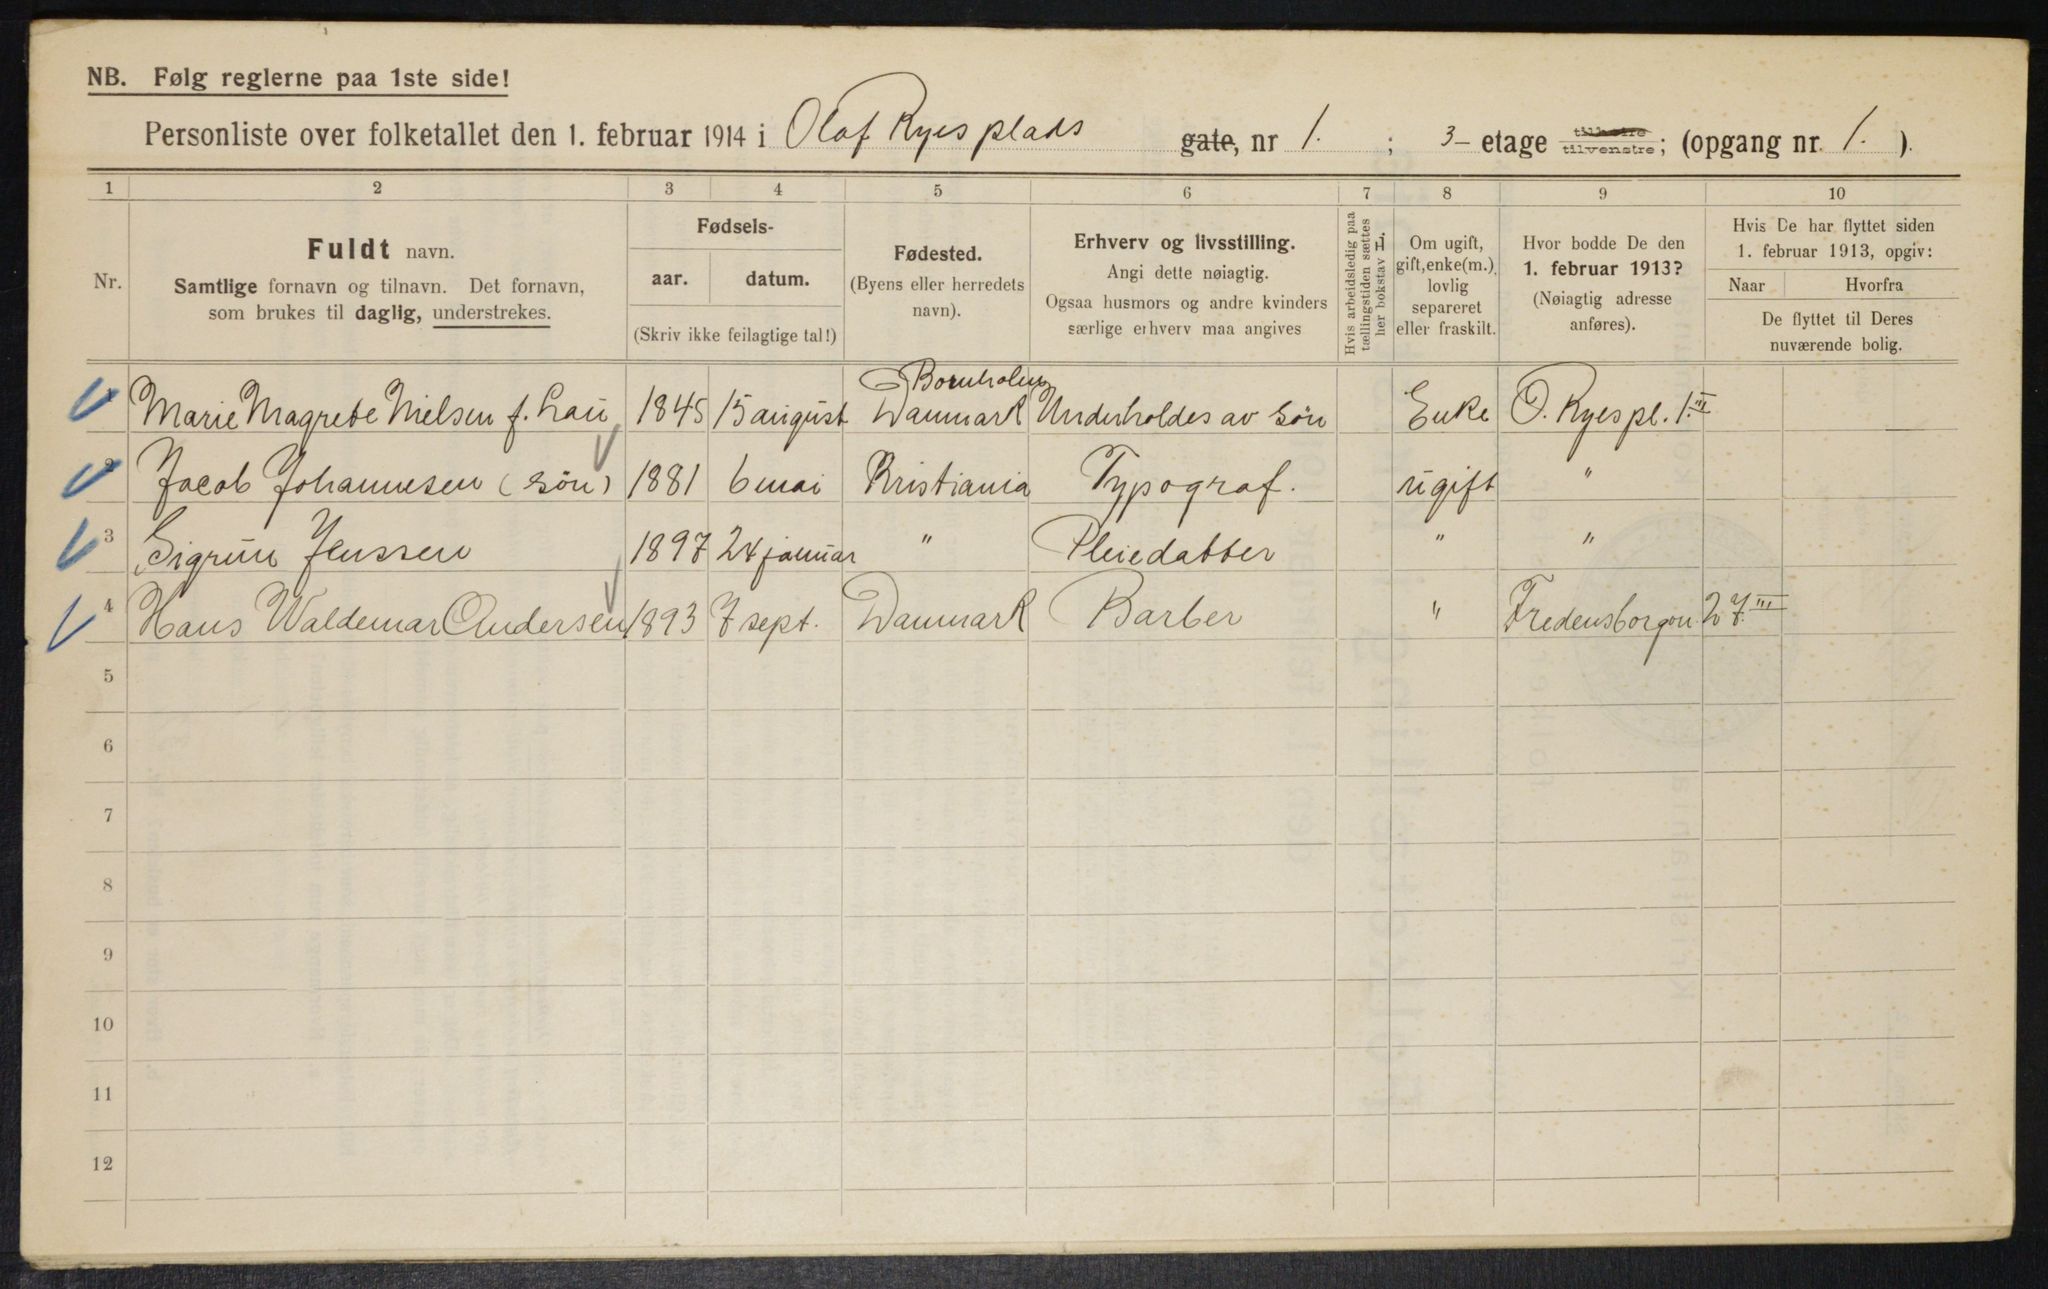 NB. Følg reglerne paa 1ste side!
Personliste over folketallet den 1. februar 1914 i Olaf Ryes plads gate, nr 1. ; 3- etage tilhøire tilvenstre; (opgang nr. 1. ).
1 2 3 4 5 6 7 8 9 10
Nr.
Fuldt navn.
Samtlige fornavn og tilnavn. Det fornavn,
som brukes til daglig, understrekes.
Fødsels-
aar. datum.
(Skriv ikke feilagtige tal!)
Fødested.
(Byens eller herredets
navn).
Erhverv og livsstilling.
Angi dette nøiagtig.
Ogsaa husmors og andre kvinders
særlige erhverv maa angives
Hvis arbeidsledig paa
tællingstiden sættes
her bokstav L.
Om ugift,
gift, enke(m.),
lovlig
separeret
eller fraskilt.
Hvor bodde De den
1. februar 1913?
(Nøiagtig adresse
anføres).
Hvis De har flyttet siden
1. februar 1913, opgiv:
Naar Hvorfra
De flyttet til Deres
nuværende bolig.
Bornholm
1 Marie Magrete Nielsen f. Lau 1845 15 august Danmark Underholdes av søn Enke O. Ryes pl. 1. III
2 Jacob Johannesen (søn) 1881 6 mai Kristiania Typograf. ugift "
3 Sigrun Jenssen 1897 24 januar " Pleiedatter " "
4 Hans Waldemar Andersen 1893 7 sept. Danmark Barber " Fredensborgvn. 27 III
5
6
7
8
9
10
11
12